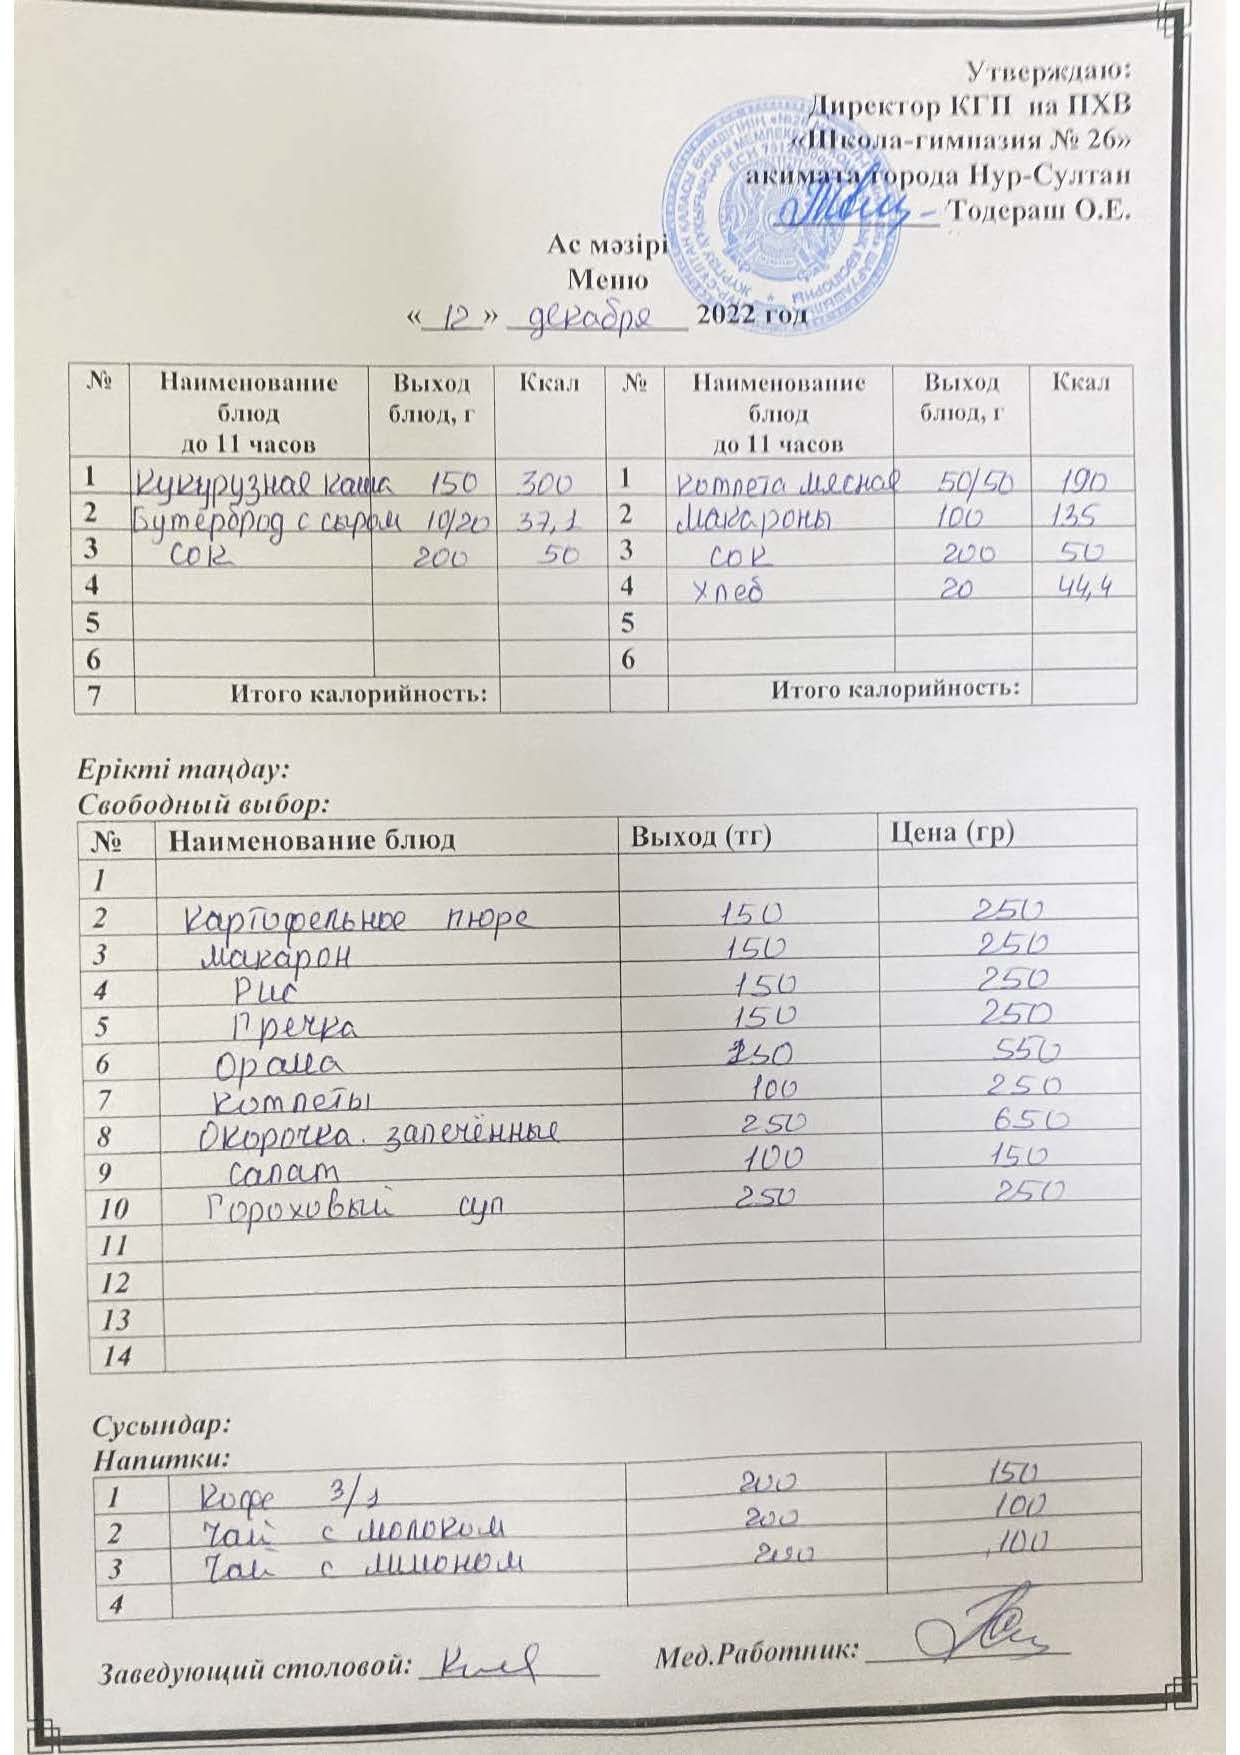 Утверждаю:
Директор КГП на ПХВ
«Школа-гимназия № 26»
акимата города Нур-Султан
Тодераш О.Е.
Ас мәзірі
Меню
« 12 » декабря 2022 год
№ Наименование блюд до 11 часов Выход блюд, г Ккал № Наименование блюд до 11 часов Выход блюд, г Ккал
1 Кукурузная каша 150 300 1 котлета мясная 50/50 190
2 Бутерброд с сыром 10/20 37,1 2 макароны 100 135
3 сок 200 50 3 сок 200 50
4 4 хлеб 20 44,4
5 5
6 6
7 Итого калорийность: Итого калорийность:
Ерікті таңдау:
Свободный выбор:
№ Наименование блюд Выход (тг) Цена (гр)
1
2 Картофельное пюре 150 250
3 макарон 150 250
4 Рис 150 250
5 Гречка 150 250
6 Орама 150 550
7 котлеты 100 250
8 Окорочка запечённые 250 650
9 салат 100 150
10 Гороховый суп 250 250
11
12
13
14
Сусындар:
Напитки:
1 Кофе 3/1 200 150
2 Чай с молоком 200 100
3 Чай с лимоном 200 100
4
Заведующий столовой: Мед.Работник: